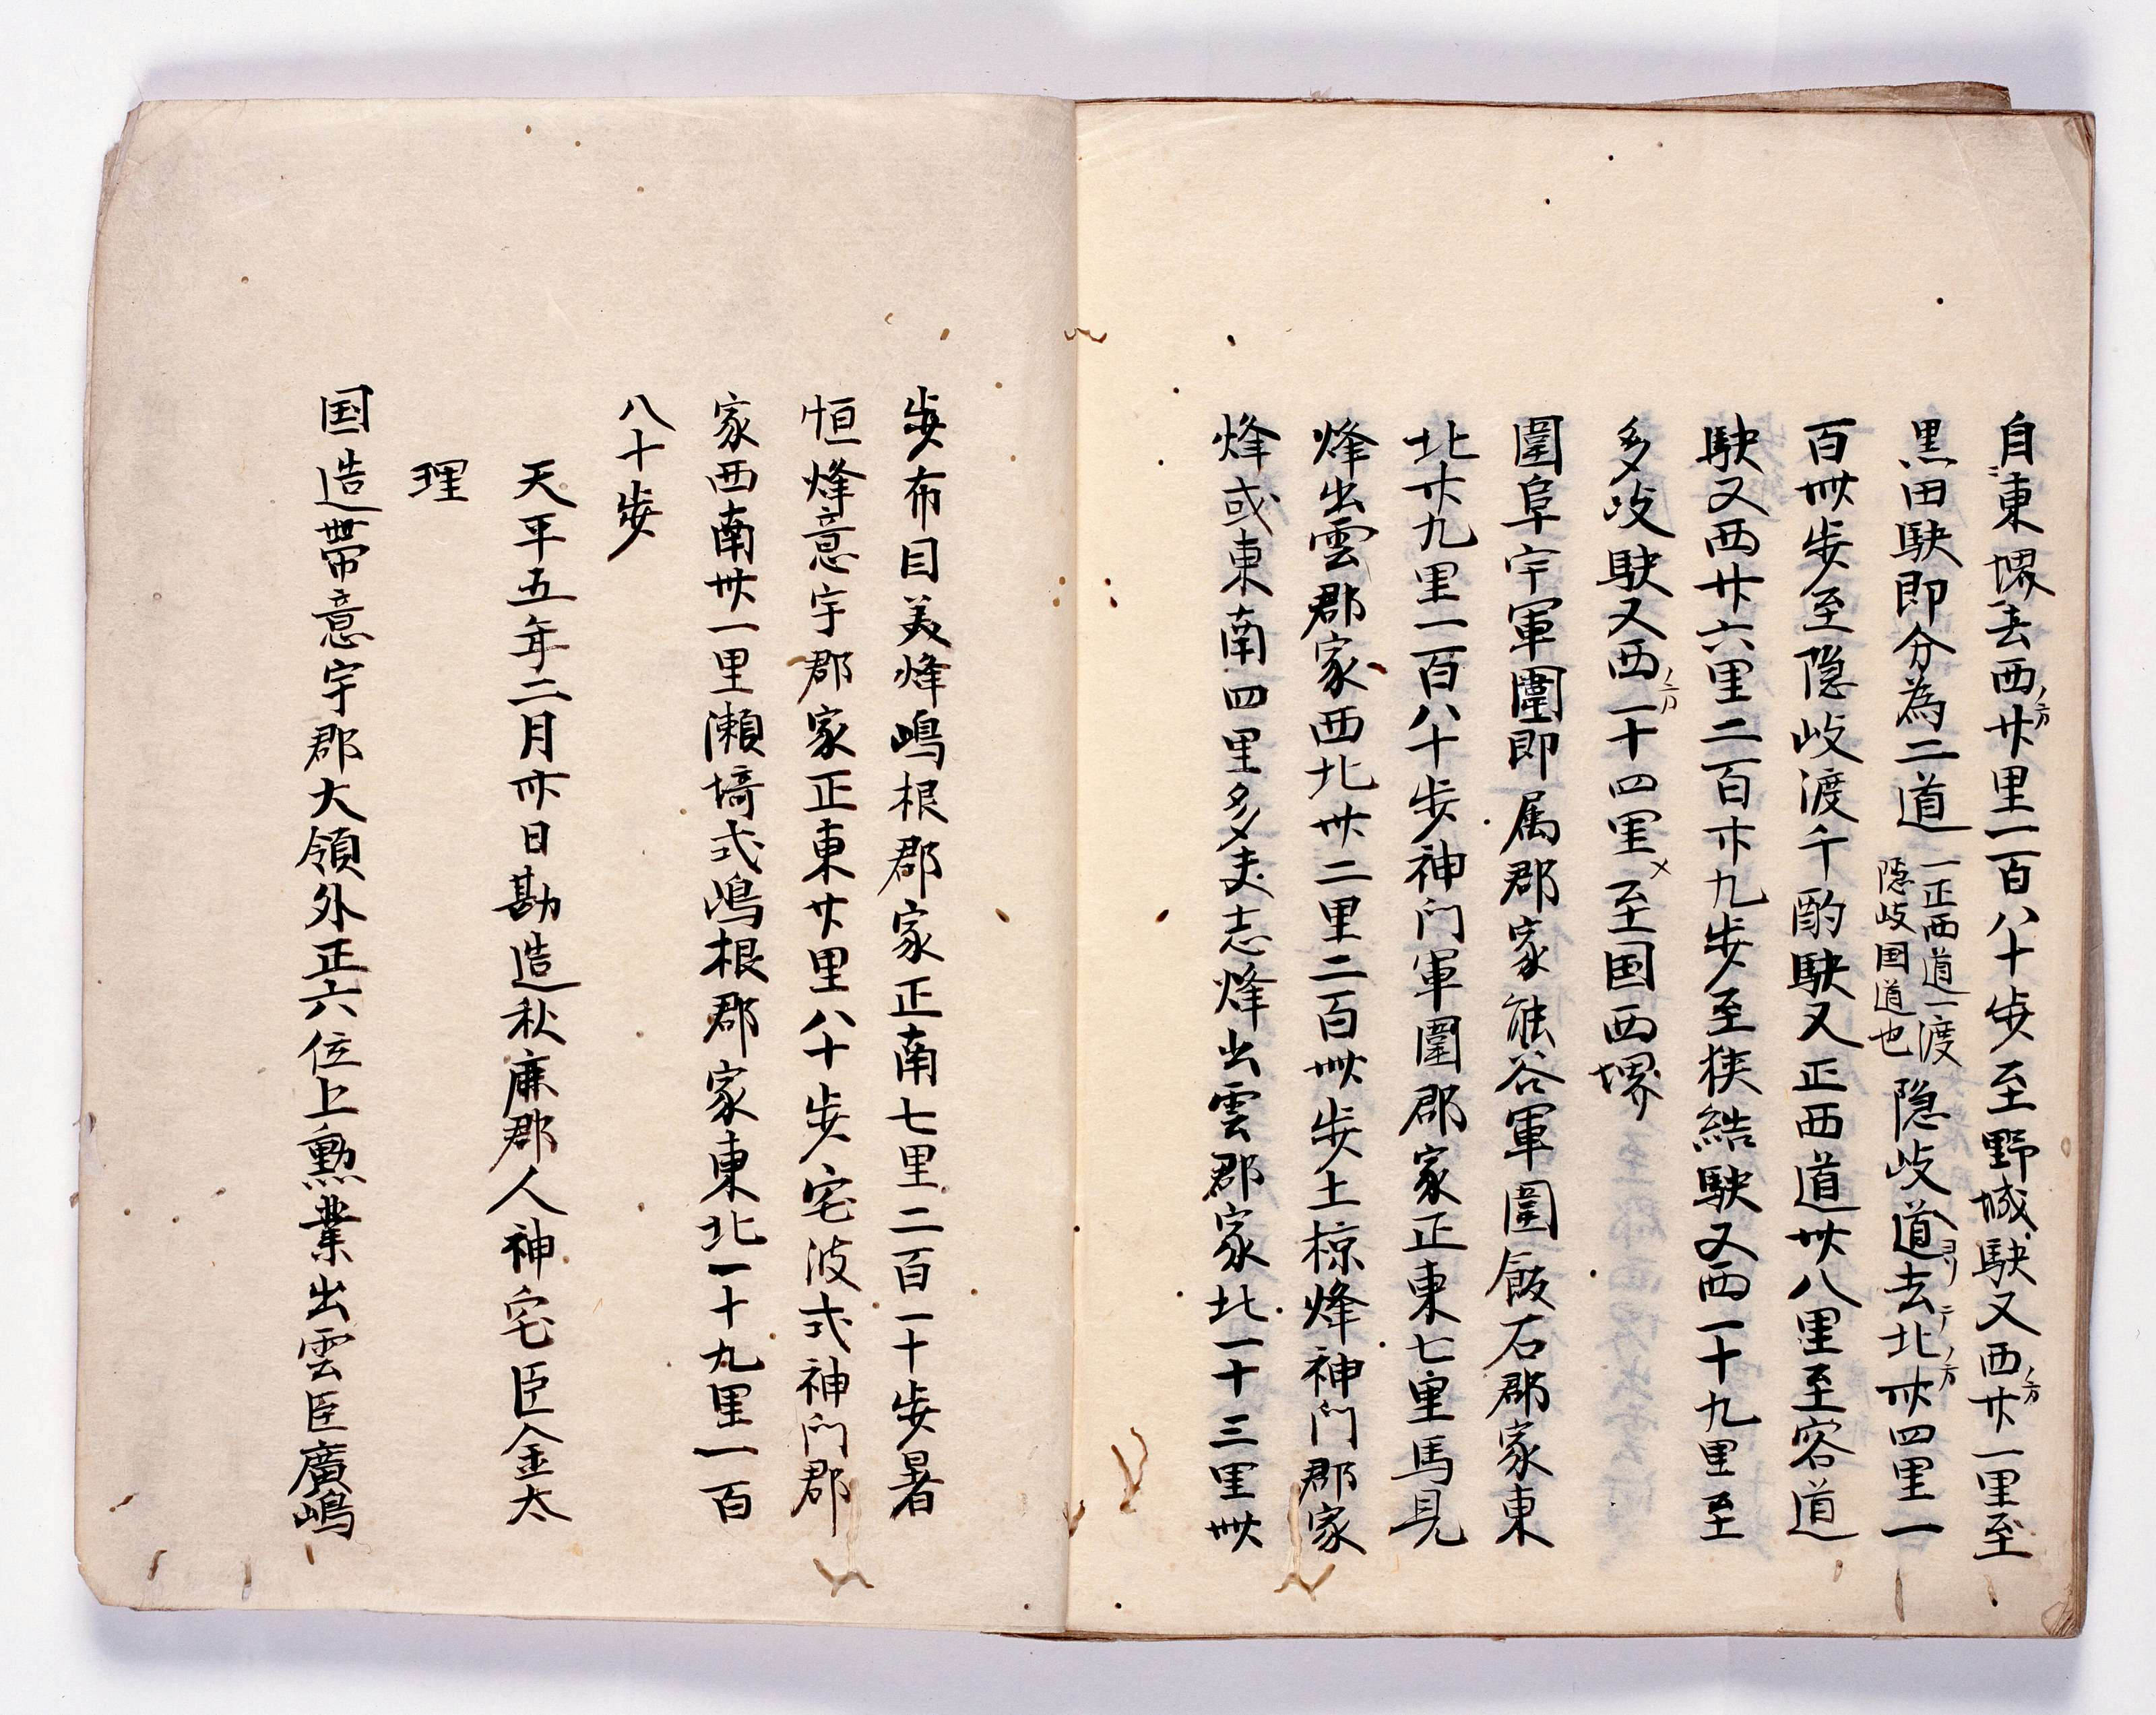 自東堺去西廿里一百八十歩至野城駅又西廿一里至
黒田駅即分為二道一正西道一渡隠岐国道也隠岐道去北卅四里一
百卌歩至隠岐渡千酌駅又正西道卅八里至宍道
駅又西廿六里二百廿九歩至狭結駅又西一十九里至
多岐駅又西一十四里至国西堺
圍阜宇軍圍即属郡家熊谷軍圍飯石郡家東
北廾九里一百八十歩神门軍圍郡家正東七里馬見
烽出雲郡家西北卅二里二百卌歩土椋烽神门郡家
烽或東南四里多夫志烽出雲郡家北一十三里卌
歩布自美烽嶋根郡家正南七里二百一十歩暑
恒烽意宇郡家正東廿里八十歩宅波弍神门郡
家西南卅一里瀬﨑弍嶋根郡家東北一十九里一百
八十歩
天平五年二月卅日勘造秋鹿郡人神宅臣金太
理
国造帯意宇郡大領外正六位上勲業出雲臣廣嶋